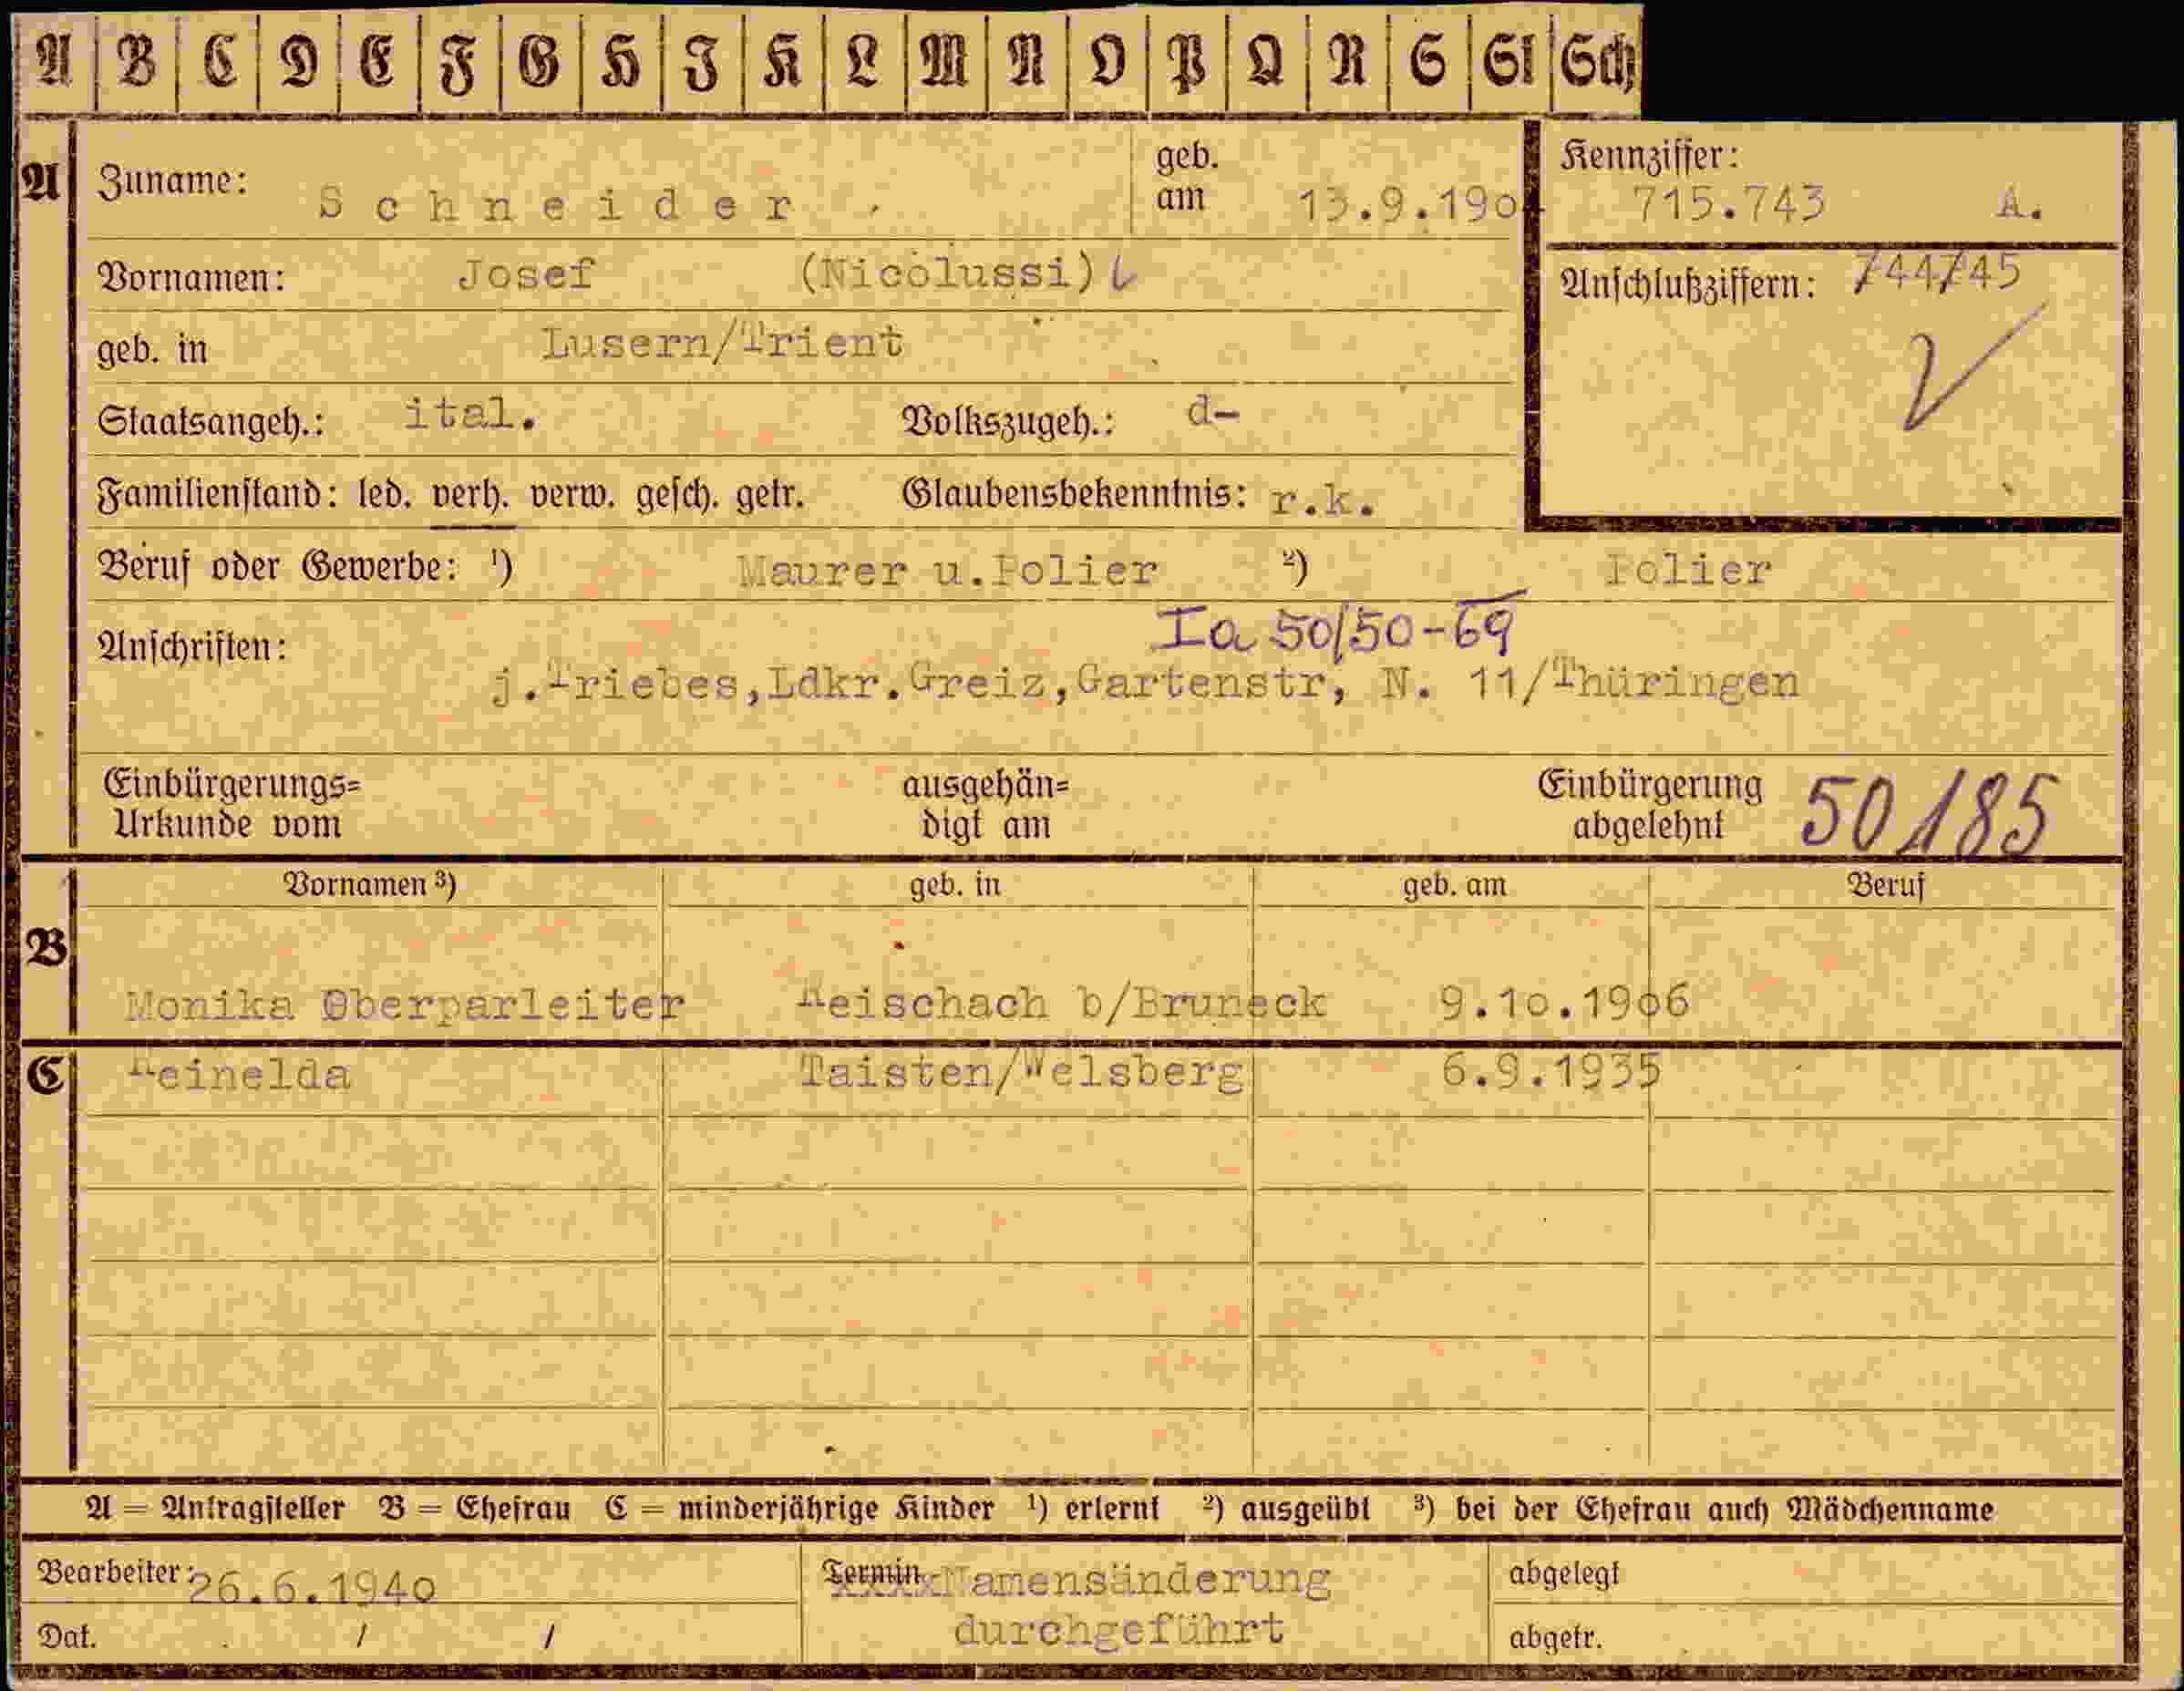 A B C D E F G H I K L M N O P Q R S St Sch
A Zuname: Schneider geb. am 13.9.1904 Kennziffer: 715.743 A.
Vornamen: Josef (Nicolussi) Anschlußziffern: 744/45
geb. in Lusern/Trient
Staatsangeh.: ital. Volkszugeh.: d-
Familienstand: led. verh. verw. gesch. getr. Glaubensbekenntnis: r.k.
Beruf oder Gewerbe: ¹) Maurer u.Polier ²) Polier
Ia 50/50-69
Anschriften:
j.Triebes,Ldkr.Greiz,Gartenstr, N. 11/Thüringen
Einbürgerungs= ausgehän= Einbürgerung
Urkunde vom digt am abgelehnt 50185
Vornamen ³) geb. in geb. am Beruf
B
Monika Oberparleiter Reischach b/Bruneck 9.10.1906
C Reinelda Taisten/Welsberg 6.9.1935
A = Antragsteller B = Ehefrau C = minderjährige Kinder ¹) erlernt ²) ausgeübt ³) bei der Ehefrau auch Mädchenname
Bearbeiter: 26.6.1940 Termin Namensänderung abgelegt
Dat. / / durchgeführt abgetr.